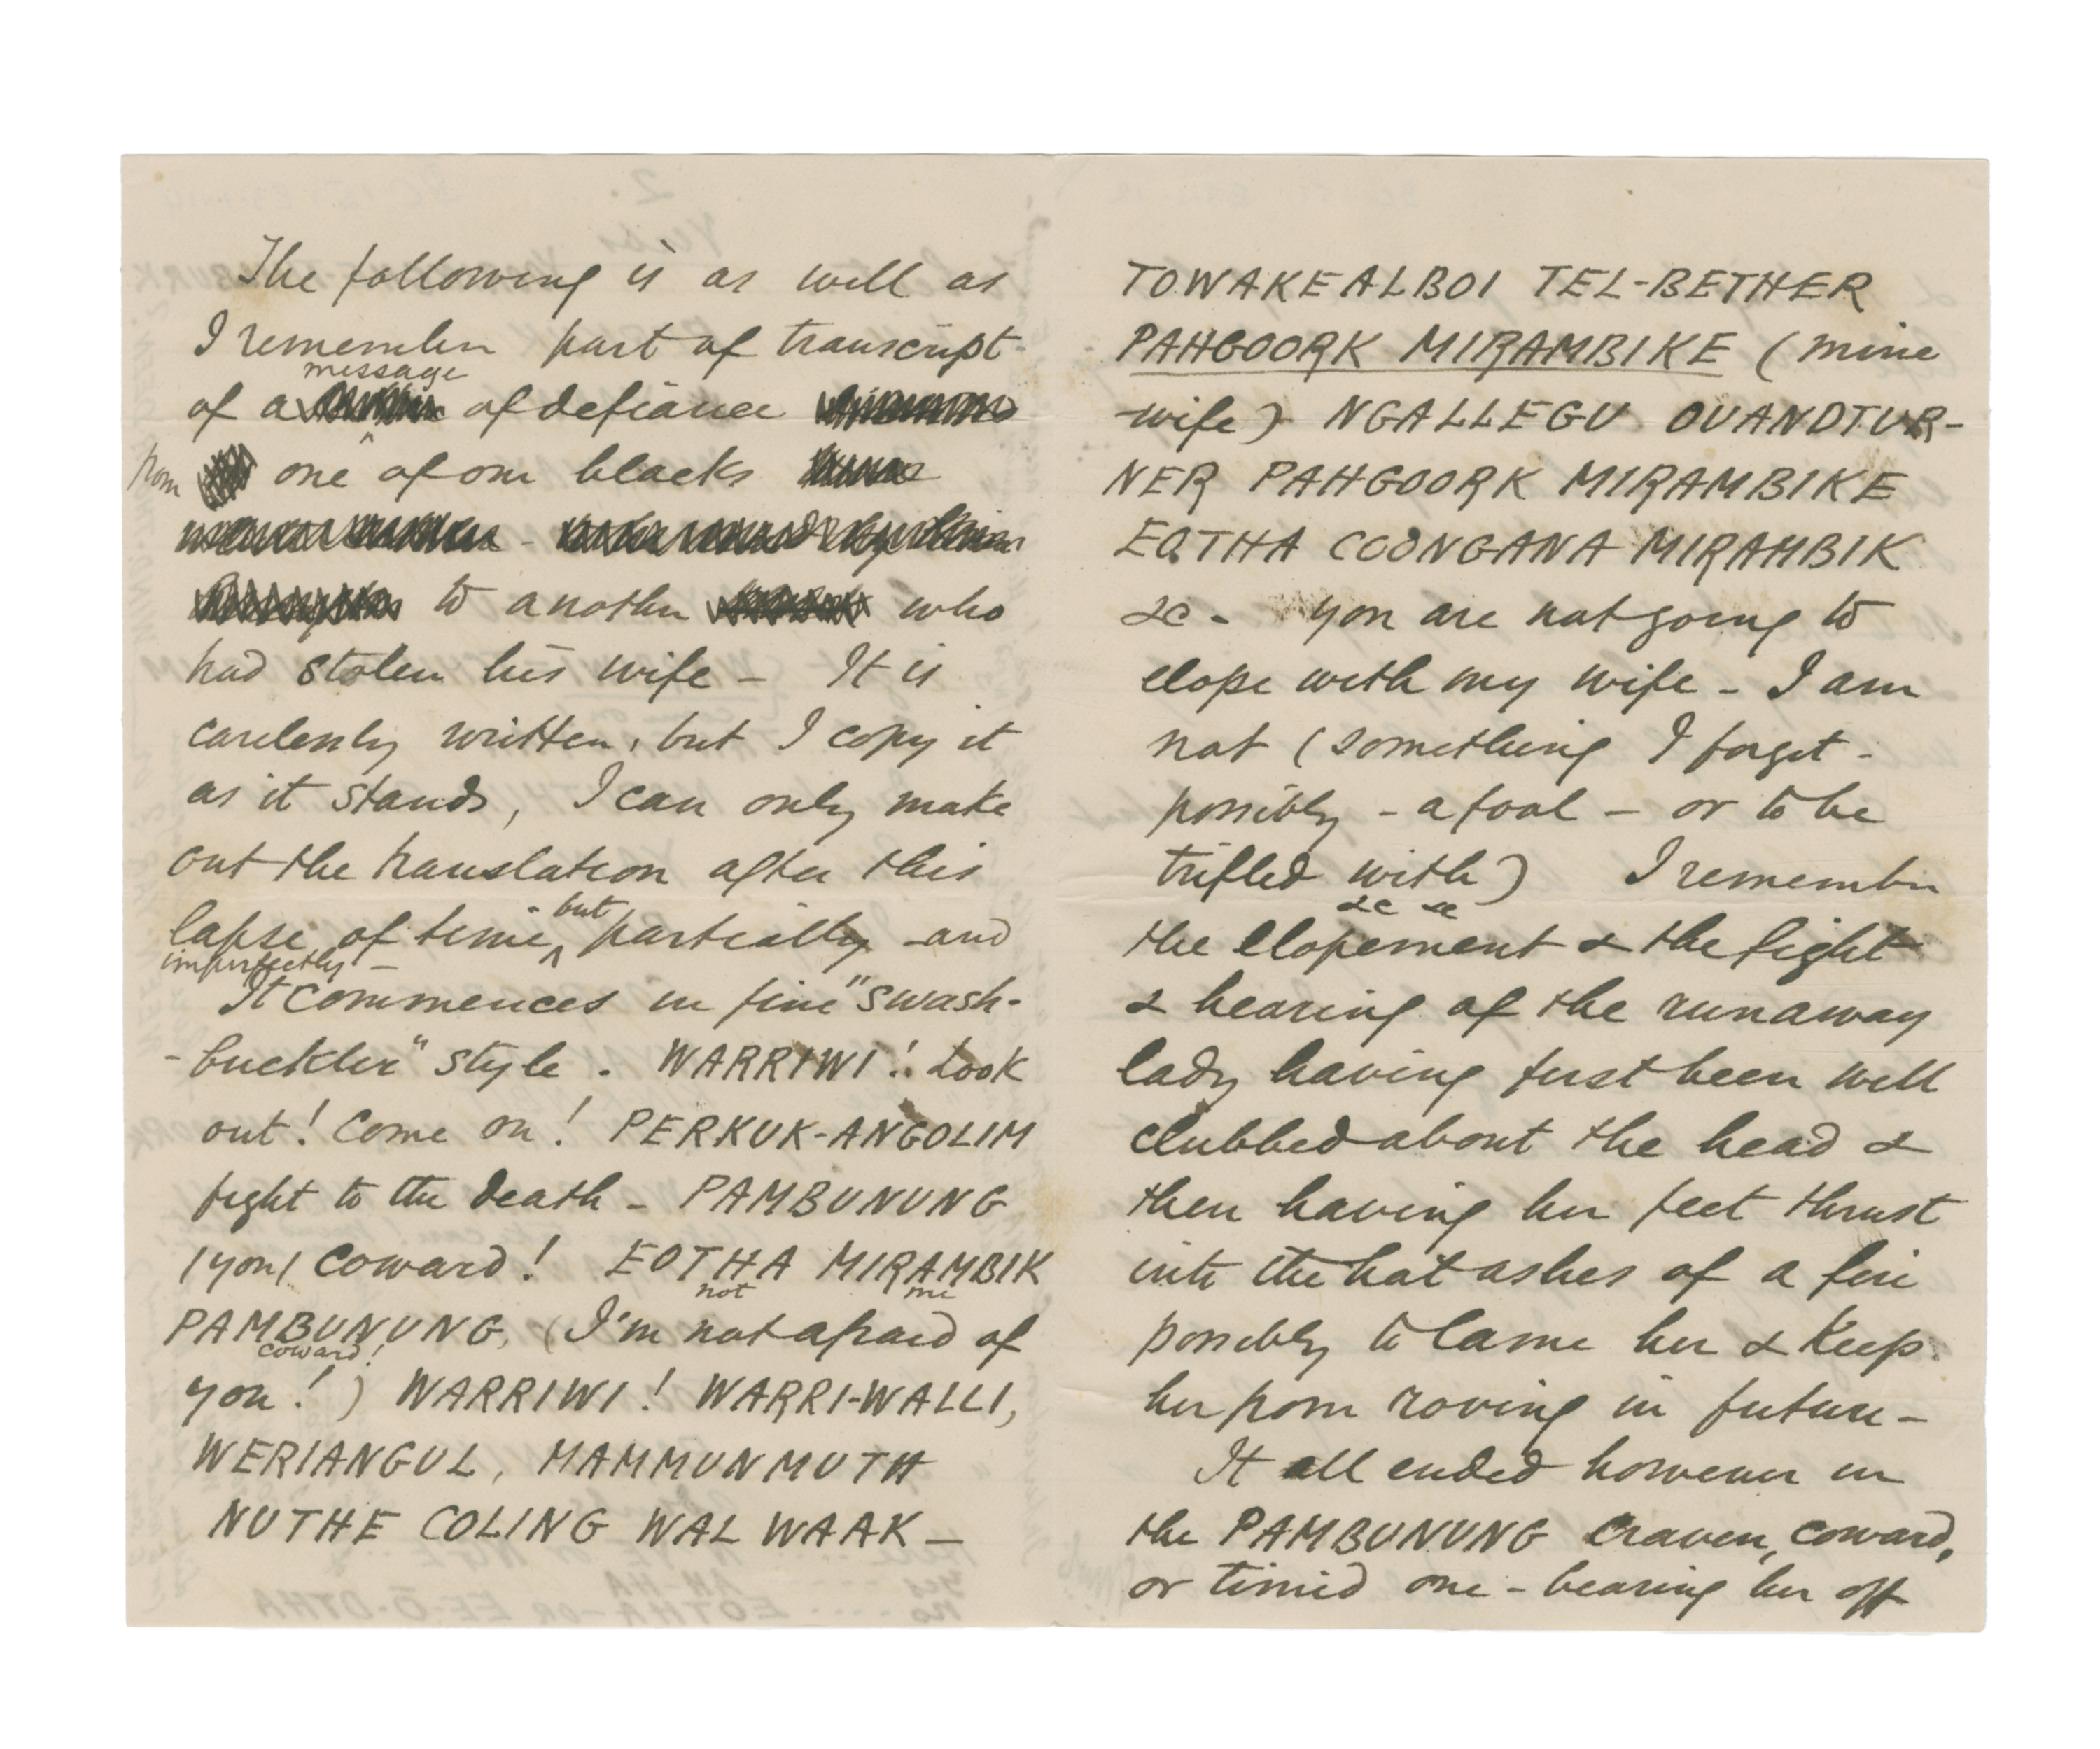 The following is as well as
I remember part of transcript
of a message of defiance
from one of our blacks
to another who
had stolen his wife – It is
carelessly written, but I copy it
as it stands, I can only make
out the translation after this
lapse of time, but partially and
imperfectly –
It commences in fine "swash-
-buckler" style. WARRIWI! Look
out! Come on! PERKUK-ANGOLIM
fight to the death – PAMBUNUNG
(you) coward! EOTHA MIRAMBIK
not me
PAMBUNUNG, (I'm not afraid of
coward!
you!) WARRIWI! WARRI-WALLI,
WERIANGUL, MAMMUNMUTH
NUTHE COLING WAL WAAK –
TOWAKEALBOI TEL-BETHER
PAHGOORK MIRAMBIKE (mine
wife) NGALLEGU OUANDTUR-
NER PAHGOORK MIRAMBIKE
EOTHA COONGANA MIRAMBIK
&c – you are not going to
elope with my wife – I am
not (something I forget –
possibly – a fool – or to be
trifled with) I remember
&c &c
the elopement & the fight
& hearing of the runaway
lady having first been well
clubbed about the head &
then having her feet thrust
into the hot ashes of a fire
possibly to lame her & keep
her from roving in future –
It all ended however in
the PAMBUNUNG craven, coward,
or timid one – bearing her off